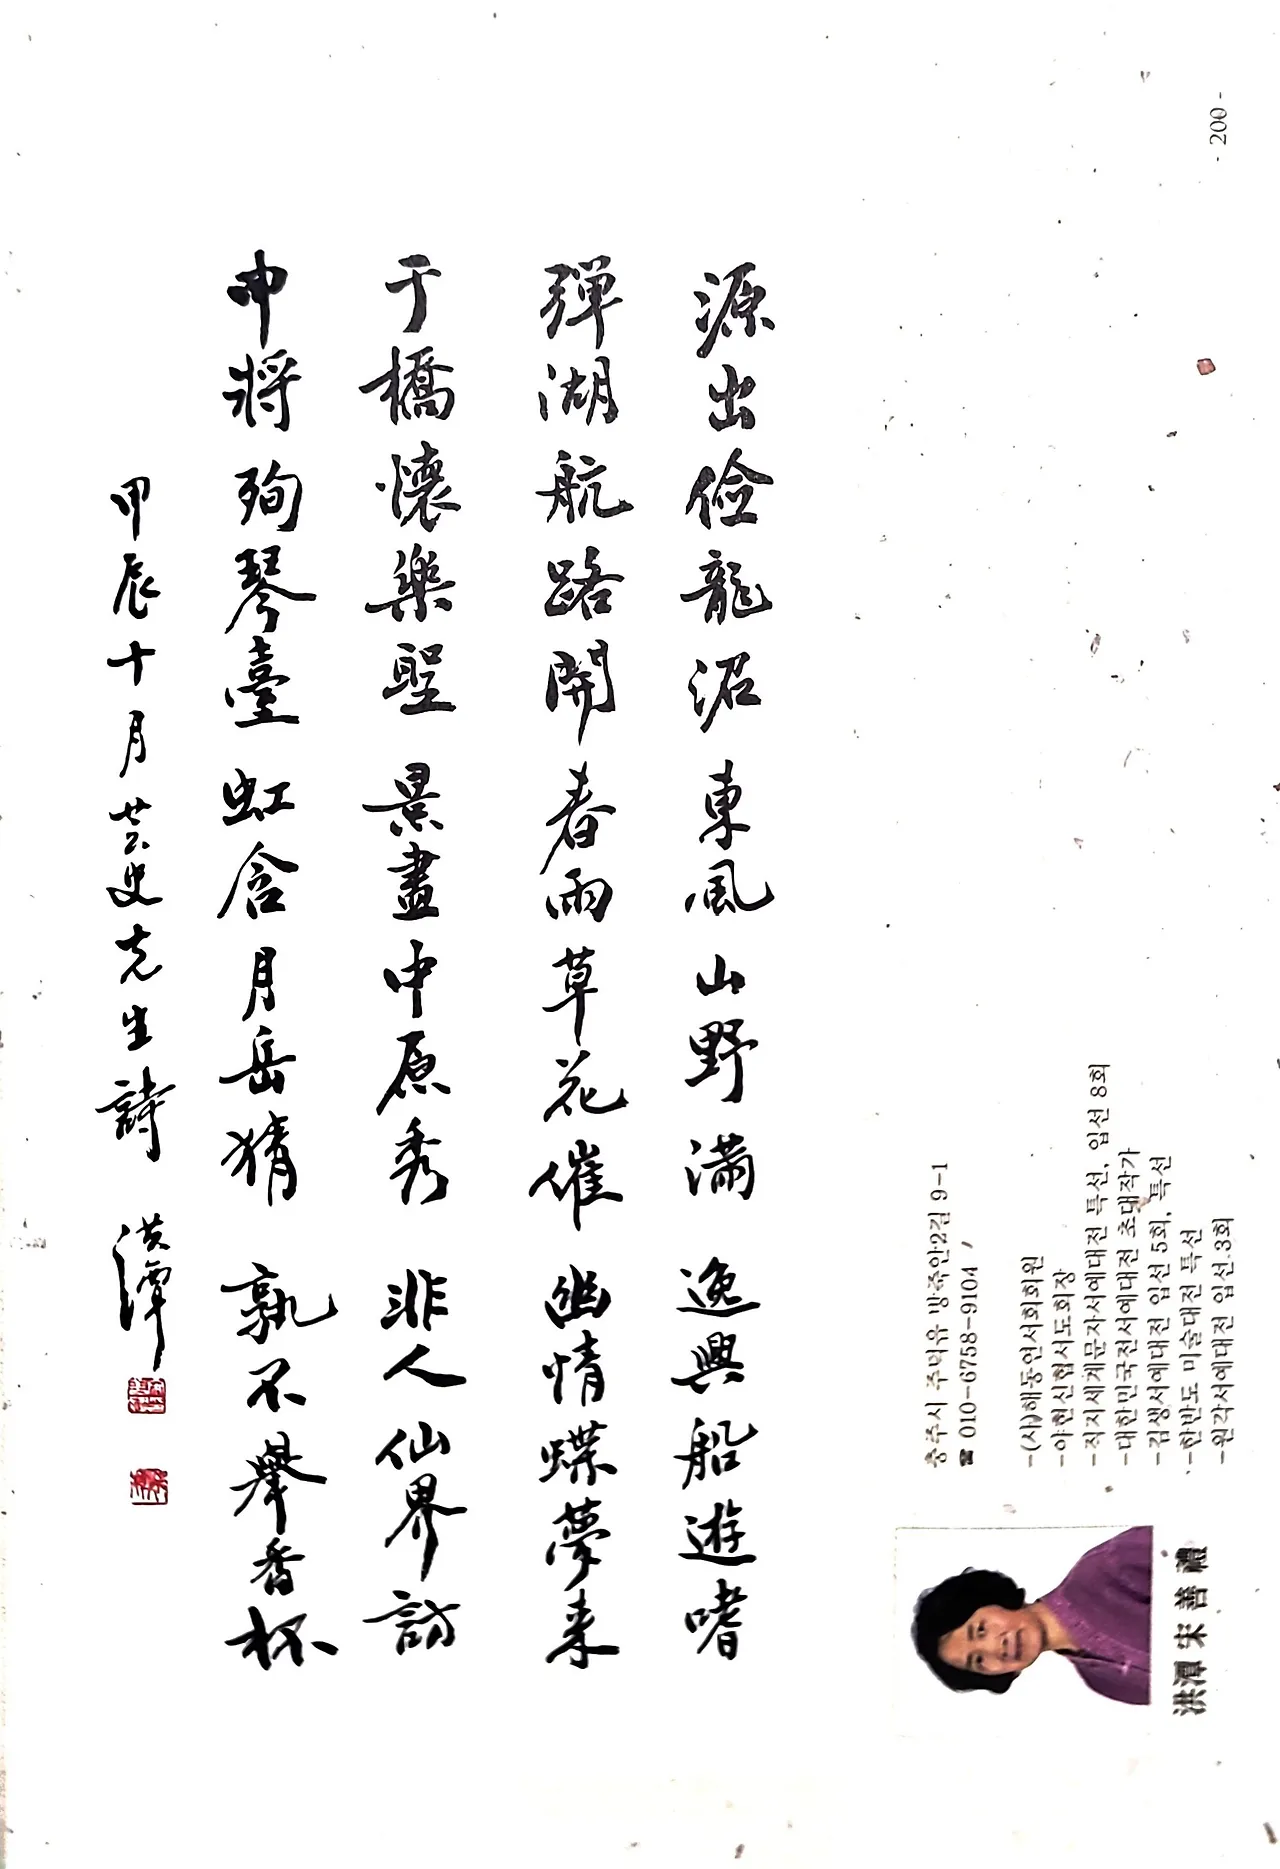 源出倹龍沼 東風山野満 逸興船遊嗜
弾湖航路開 春雨草花催 幽情蝶夢来
于橋懷楽聖 景盡中原秀 非人仙界訪
申将殉琴臺 虹含月岳猜 孰不擧香杯
甲辰十月芸史先生詩 洪潭
충주시 주덕읍 방죽안2길 9-1
☎ 010-6758-9104
-(사)해동연서회회원
-아현신협서도회장
-직지세계문자서예대전 특선, 입선 8회
-대한민국전서예대전 초대작가
-김생서예대전 입선 5회, 특선
-한반도 미술대전 특선
-원각서예대전 입선 3회
洪潭 宋善禮
- 200 -